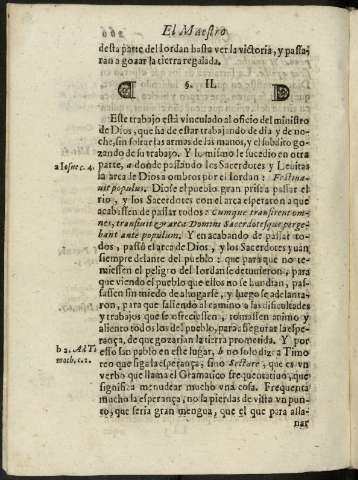 El Maestro
desta parte del Iordan hasta ver la victoria, y passa-
ran a gozar la tierra regalada.
§. II.
Este trabajo està vinculado al oficio del ministro
de Dios, que ha de estar trabajando de dia y de no-
che, sin soltar las armas de las manos, y el subdito go-
zando de su trabajo. Y lo mismo le sucedio en otra
a Iosue c. 4.
parte, a donde passando los Sacerdotes y Leuitas
la arca de Dios a ombros por el Iordan: Festina-
uit populus. Diose el pueblo gran prissa passar el
rio, y los Sacerdotes con el arca esperaron a que
acabassen de passar todos: Cumque transirent om-
nes, transiuit & arca Domini Sacerdotesque perge-
bant ante populum. Y en acabando de passar to-
dos, passò el arca de Dios, y los Sacerdotes yuan
siempre delante del pueblo: que para que no te-
miessen el peligro del Iordan se detuuieron, para
que viendo el pueblo que ellos no se hundian, pas-
sassen sin miedo de ahogarse, y luego se adelanta-
ron, para que saliendo al camino a las dificultades
y trabajos que se ofrecussen, tomassen animo y
aliento todos los del pueblo, para assegurar la espe-
rança, de que gozarian la tierra prometida. Y por
b 2. Ad Ti
moth. c. 2.
esso san pablo en este lugar, b no solo dize a Timo
teo que siga la esperança, sino Sectare, que es vn
verbo que llama el Gramatico frequentatiuo, que
significa menudear mucho vna cosa. Frequenta
mucho la esperança, no la pierdas de vista vn pun-
to, que seria gran mengua, que el que para alla-
nar